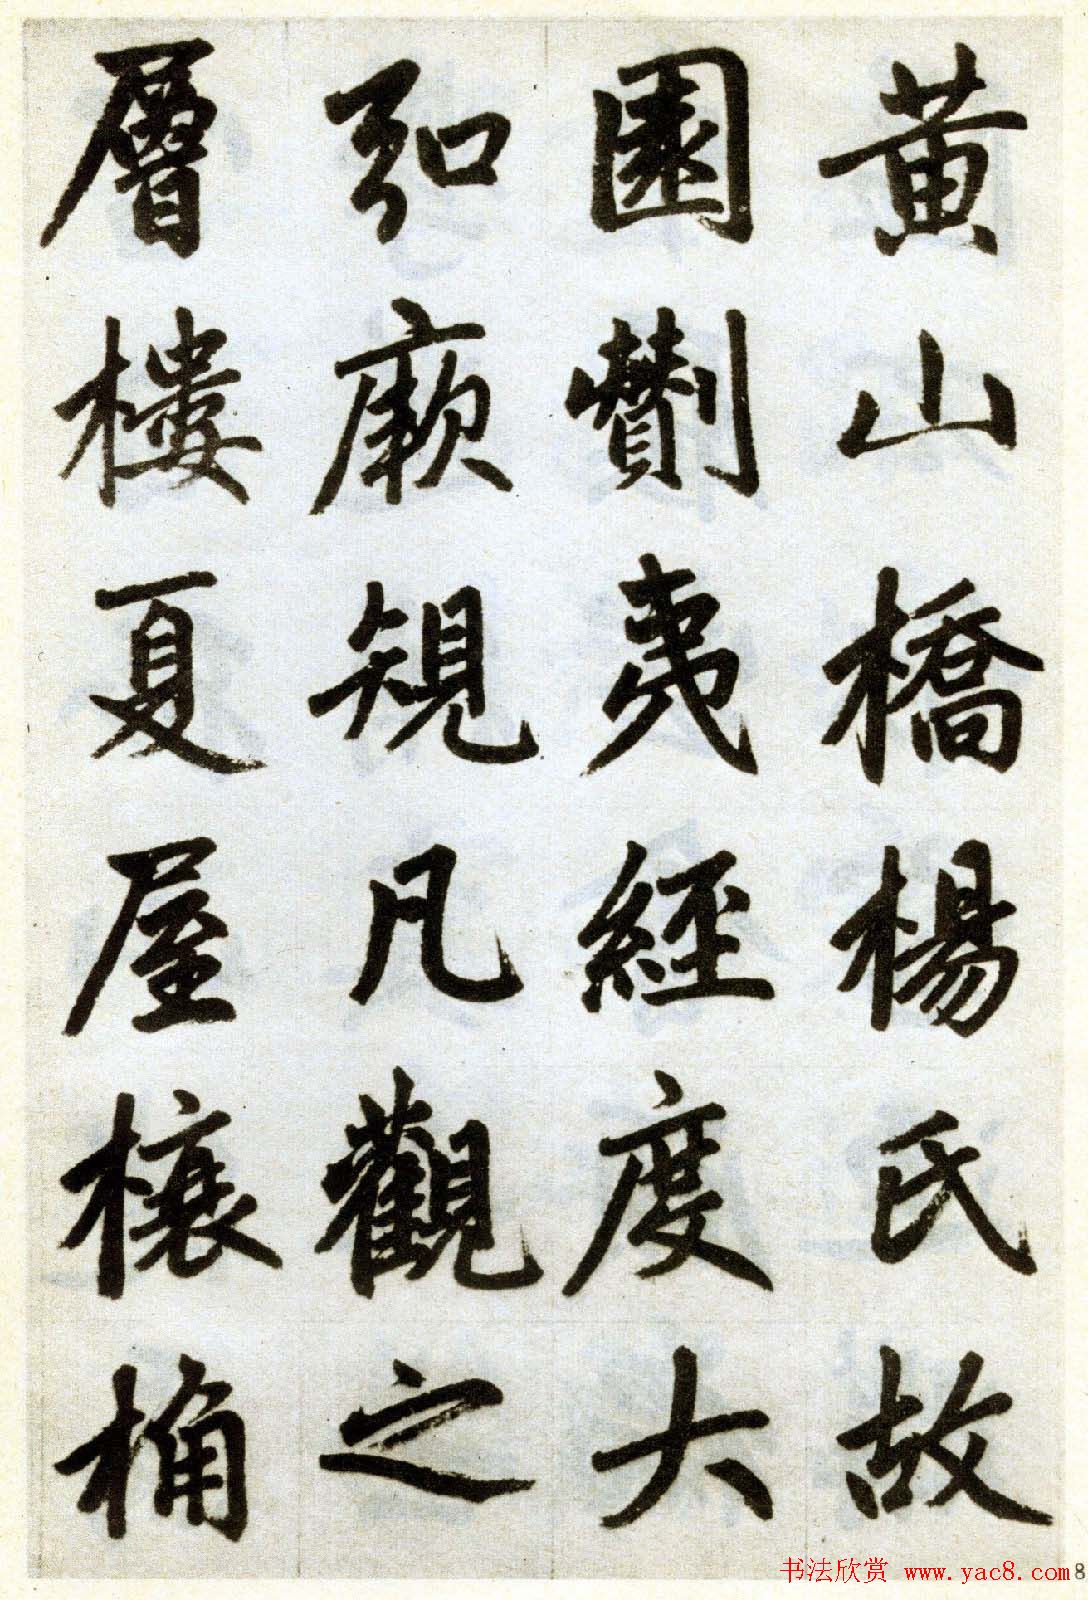 黄山橋楊氏故
園劗夷經度大
弘厥規凡觀之
層樓夏屋榱桷
书法欣赏 www.yac8.com
8